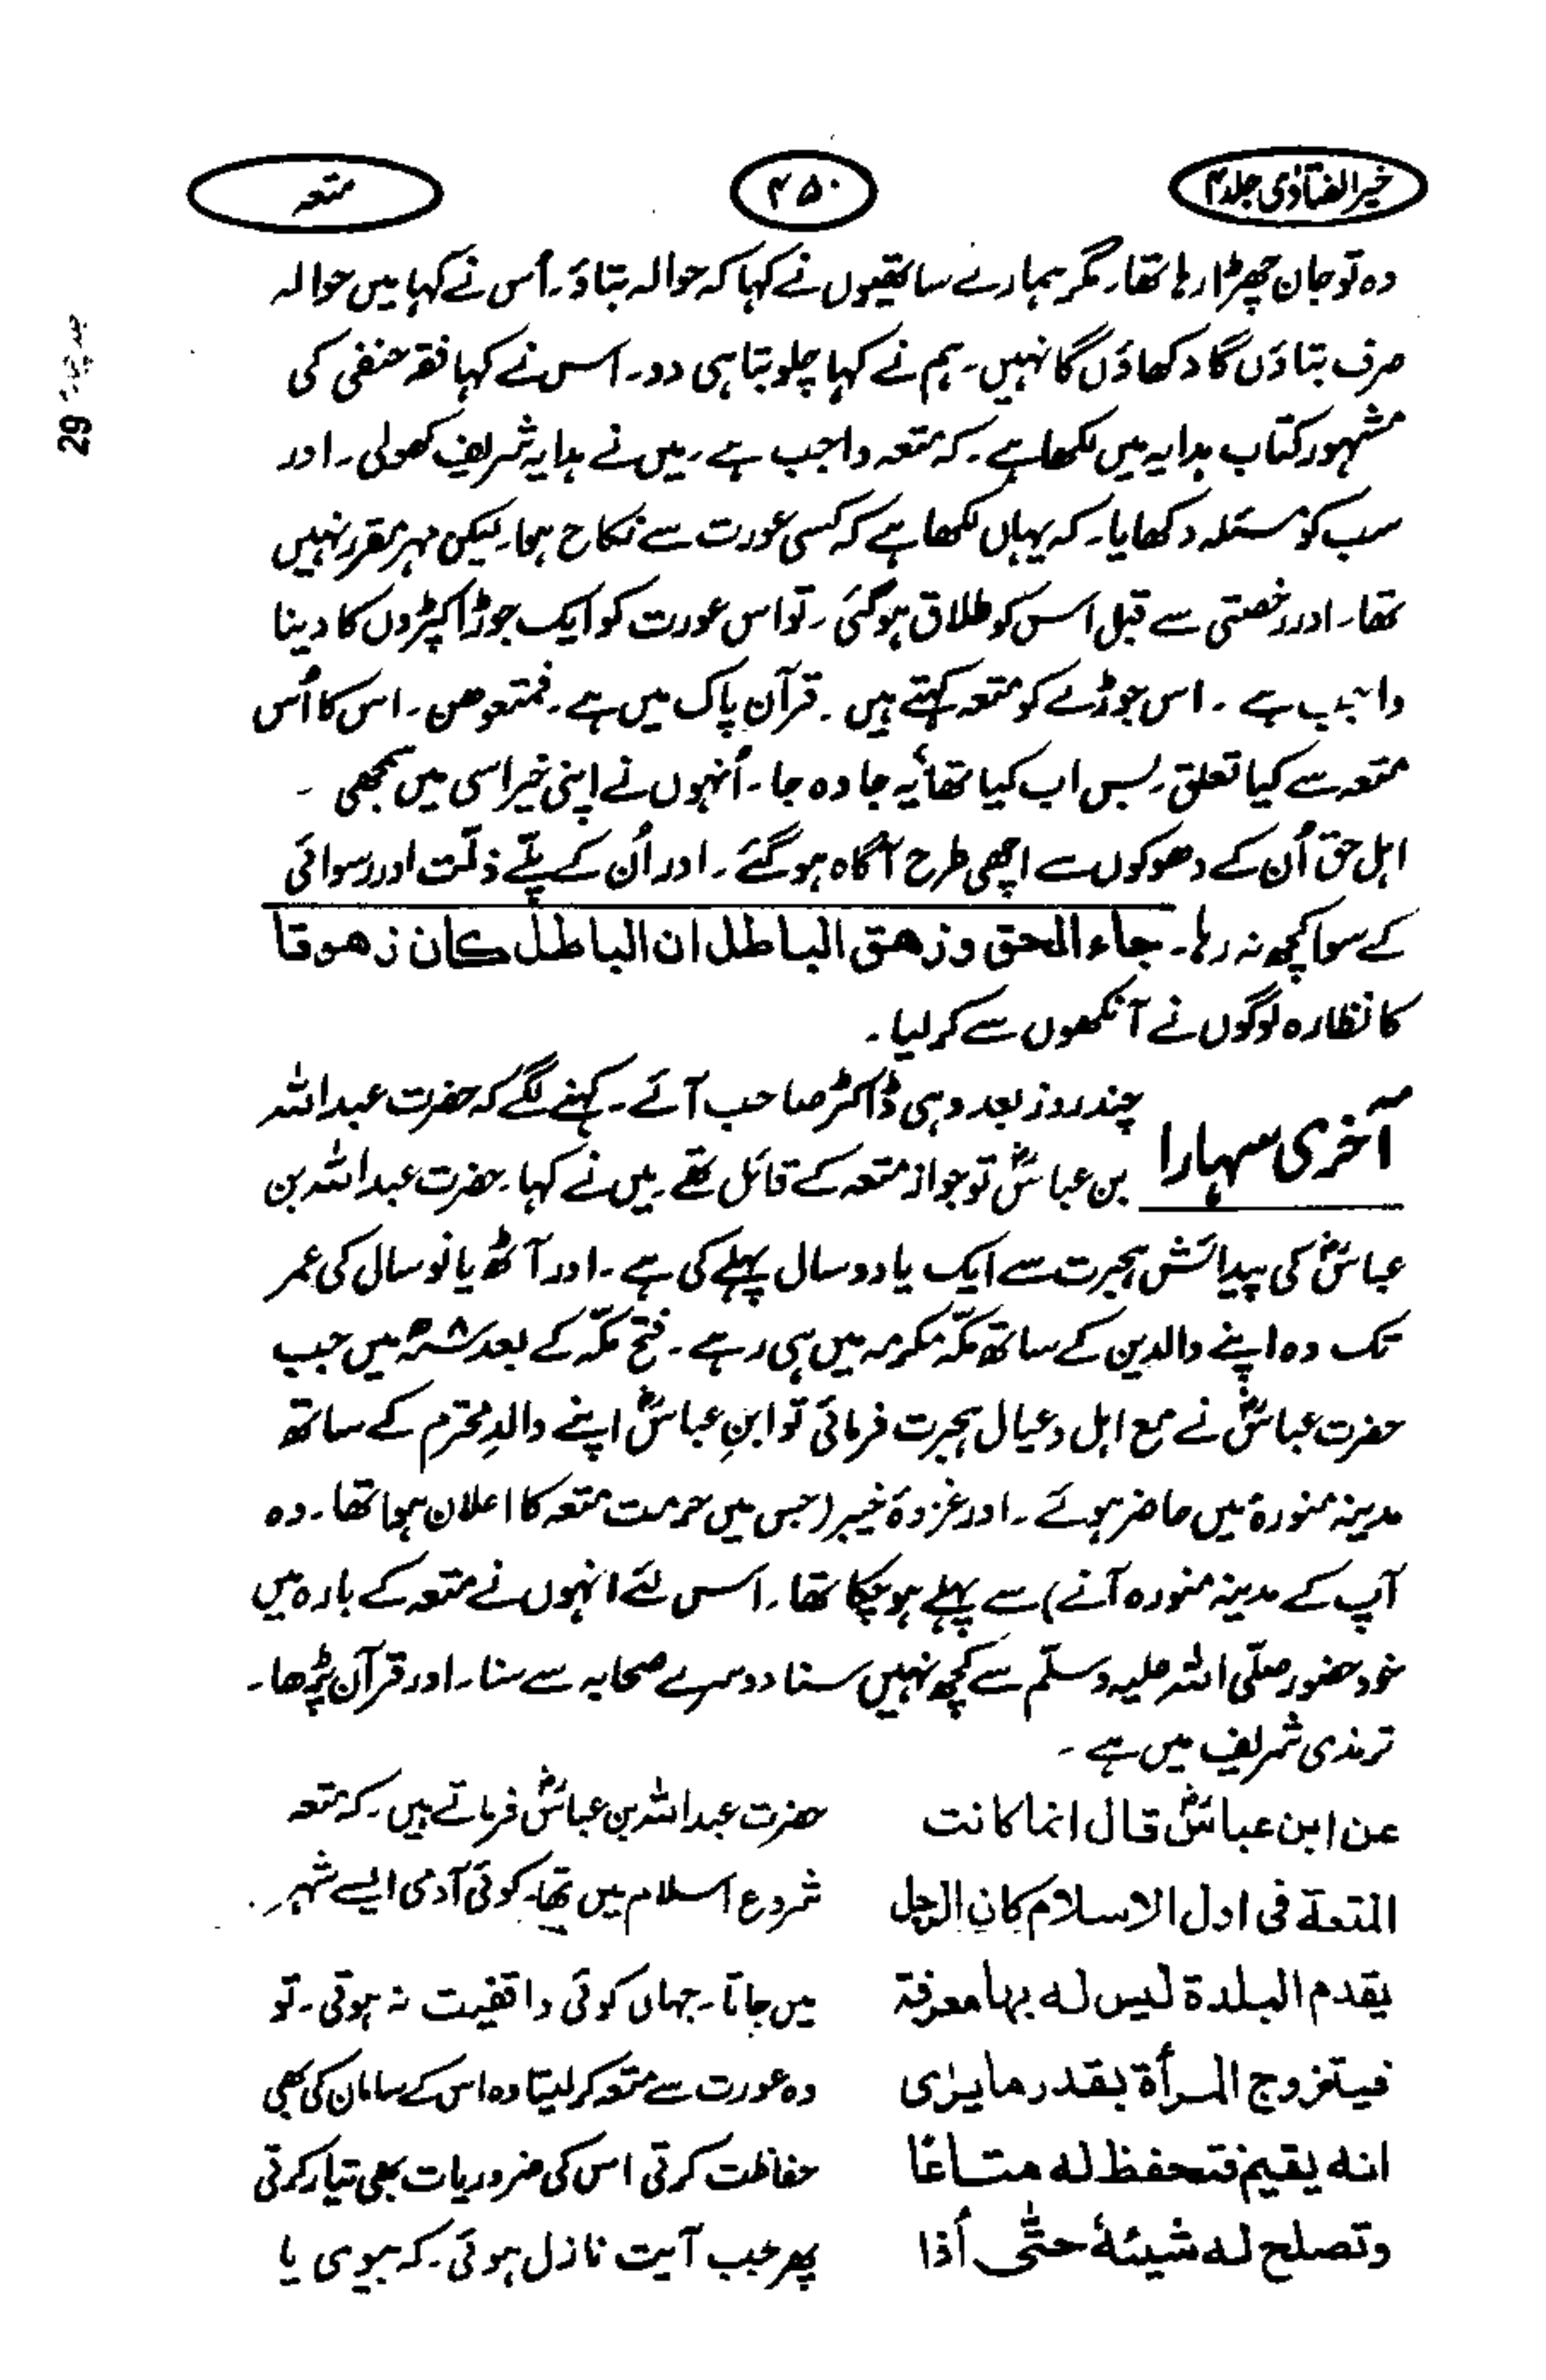 خیر الفتاوٰی جلد ۴
۴۵۰
متعہ
وہ تو جان چھڑا رہا تھا۔ مگر ہمارے ساتھیوں نے کہا کہ حوالہ بتاؤ۔ اُس نے کہا میں حوالہ
صرف بتاؤں گا دکھاؤں گا نہیں۔ ہم نے کہا چلو بتا ہی دو۔ اس نے کہا فقہ حنفی کی
مشہور کتاب ہدایہ میں لکھا ہے۔ کہ متعہ واجب ہے۔ میں نے ہدایہ شریف کھولی۔ اور
سب کو مسئلہ دکھایا۔ کہ یہاں لکھا ہے کہ کسی عورت سے نکاح ہوا۔ لیکن مہر مقرر نہیں
تھا۔ اور رخصتی سے قبل اس کو طلاق ہو گئی۔ تو اس عورت کو ایک جوڑا کپڑوں کا دینا
واجب ہے۔ اس جوڑے کو متعہ کہتے ہیں۔ قرآن پاک میں ہے۔ فمتعوھن۔ اس کا اُس
متعہ سے کیا تعلق۔ بس اب کیا تھا یہ جا وہ جا۔ اُنہوں نے اپنی خیر اسی میں سمجھی ۔
اہل حق اُن کے دھوکوں سے اچھی طرح آگاہ ہو گئے۔ اور اُن کے پلّے ذلّت اور رسوائی
کے سوا کچھ نہ رہا۔ جاء الحق و زھق الباطل ان الباطل کان زھوقا
کا نظارہ لوگوں نے آنکھوں سے کر لیا۔
آخری سہارا
چند روز بعد وہی ڈاکٹر صاحب آئے۔ کہنے لگے کہ حضرت عبداللہ
بن عباسؓ تو جواز متعہ کے قائل تھے۔ میں نے کہا۔ حضرت عبداللہ بن
عباسؓ کی پیدائش ہجرت سے ایک یا دو سال پہلے کی ہے۔ اور آٹھ یا نو سال کی عمر
تک وہ اپنے والدین کے ساتھ مکّہ مکرمہ میں ہی رہے۔ فتح مکّہ کے بعد ۸ھ میں جب
حضرت عباسؓ نے مع اہل و عیال ہجرت فرمائی تو ابنِ عباسؓ اپنے والدِ محترم کے ساتھ
مدینہ منورہ میں حاضر ہوئے۔ اور غزوۂ خیبر (جس میں حرمت متعہ کا اعلان ہوا تھا۔ وہ
آپ کے مدینہ منورہ آنے) سے پہلے ہو چکا تھا۔ اس لئے انہوں نے متعہ کے بارہ میں
خود حضور صلّی اللہ علیہ وسلّم سے کچھ نہیں سنا دوسرے صحابہ سے سنا۔ اور قرآن پڑھا۔
ترمذی شریف میں ہے ۔
عن ابن عباسؓ قال انما کانت
المتعۃ فی اول الاسلام کان الرجل
یقدم البلدۃ لیس لہ بہا معرفۃ
فیتزوج المرأۃ بقدر ما یرٰی
انہ یقیم فتحفظ لہ متاعًا
وتصلح لہ شیئہٗ حتّٰی أذا
حضرت عبداللہ بن عباسؓ فرماتے ہیں۔ کہ متعہ
شروع اسلام میں تھا۔ کوئی آدمی ایسے شہر
میں جاتا۔ جہاں کوئی واقفیت نہ ہوتی۔ تو
وہ عورت سے متعہ کر لیتا وہ اس کے سامان کی بھی
حفاظت کرتی اس کی ضروریات بھی تیار کرتی
پھر جب آیت نازل ہوئی۔ کہ بیوی یا
29